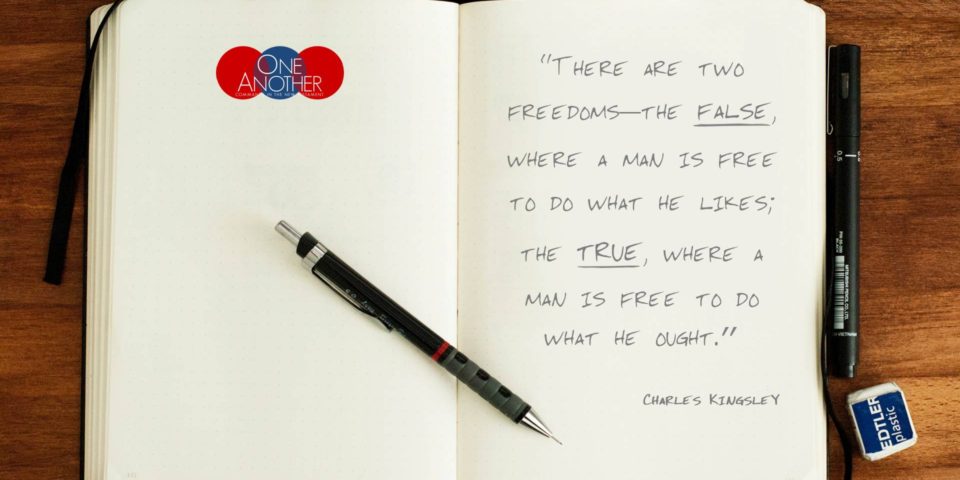 ONE
ANOTHER
"THERE ARE TWO
FREEDOMS—THE FALSE,
WHERE A MAN IS FREE
TO DO WHAT HE LIKES;
THE TRUE, WHERE A
MAN IS FREE TO DO
WHAT HE OUGHT."
CHARLES KINGSLEY
0.5
MITSUBISHI PENCIL CO., LTD.
EDTLER
plastic